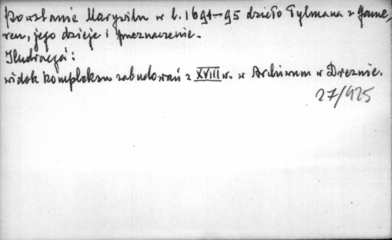 Powstanie Marywilu w l. 1691-95 dzieło Tylmana z Game
ren, jego dzieje i przeznaczenie.
Ilustracja:
widok kompleksu zabudowań z XVIII w. w Archiwum w Dreznie.
27/425